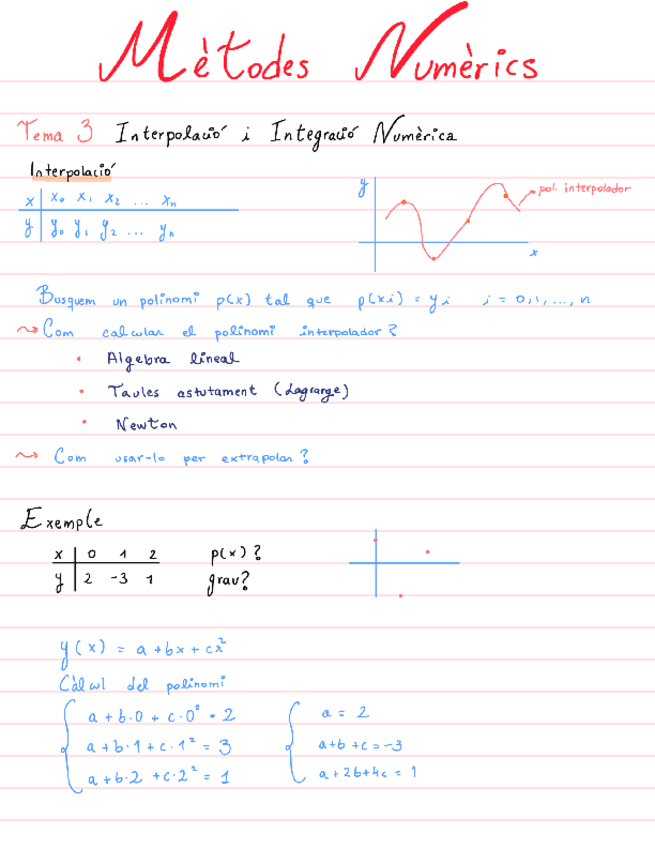 Mètodes Numèrics
Tema 3 Interpolació i Integració Numèrica
Interpolació
x | x₀ x₁ x₂ ... xₙ
y | y₀ y₁ y₂ ... yₙ
y
pol. interpolador
x
Busquem un polinomi p(x) tal que p(xi) = yi i = 0,1,...,n
⇝ Com calcular el polinomi interpolador?
• Àlgebra lineal
• Taules astutament (Lagrange)
• Newton
⇝ Com usar-lo per extrapolar?
Exemple
x | 0 1 2 p(x)?
y | 2 -3 1 grau?
y(x) = a + bx + cx²
Càlcul del polinomi
a + b·0 + c·0² = 2 a = 2
a + b·1 + c·1² = 3 a+b+c=-3
a + b·2 + c·2² = 1 a + 2b+4c = 1